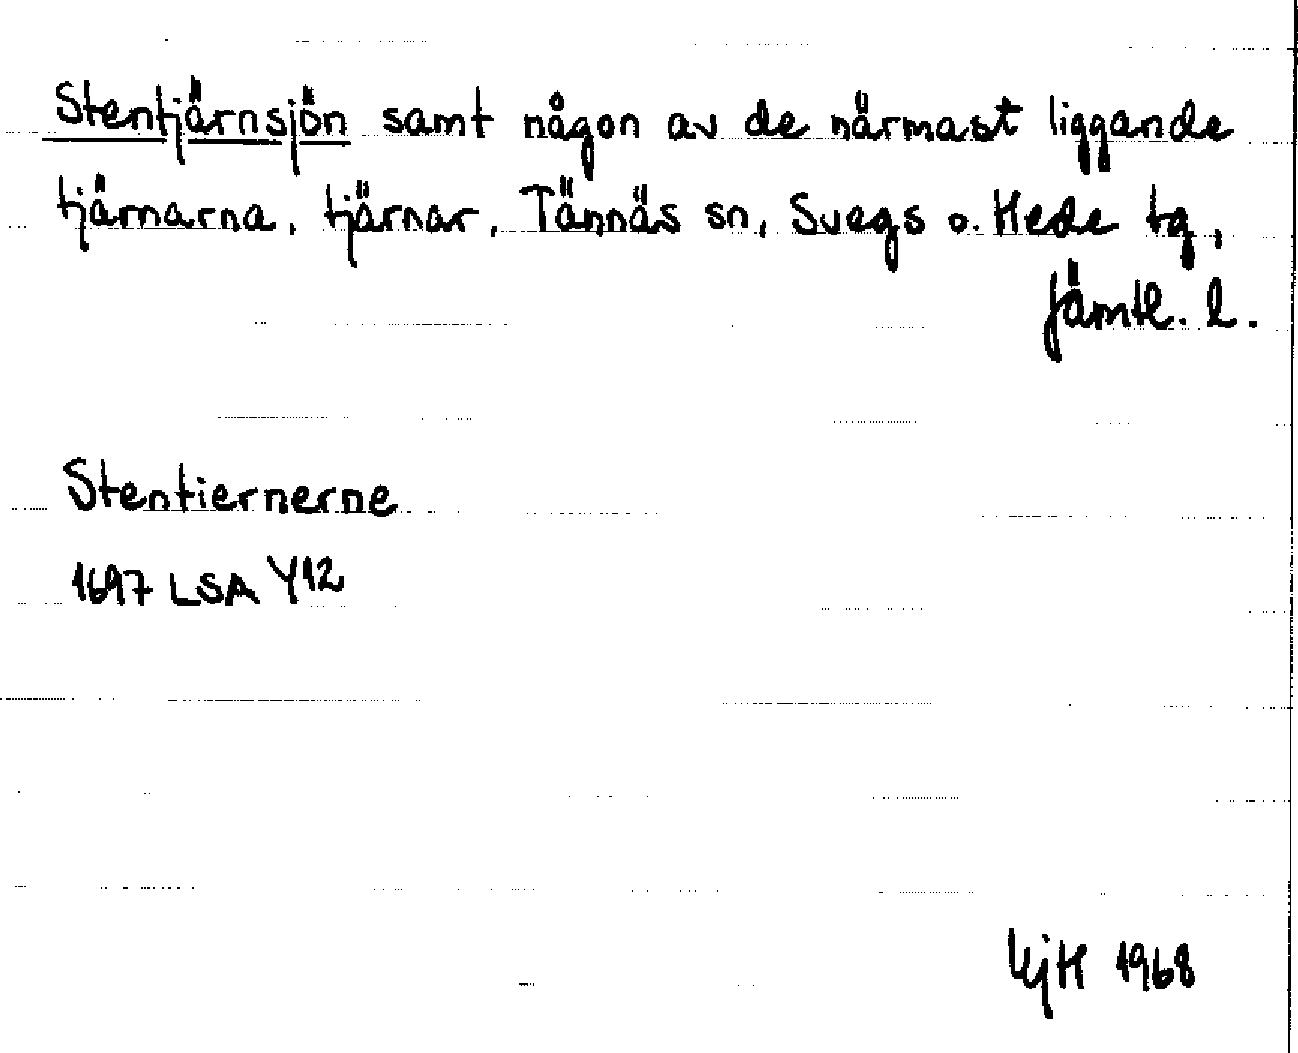 Stentjärnsjön samt någon av de närmast liggande
tjärnarna, tjärnar, Tännäs sn, Svegs o. Hede tg,
Jämtl. l.
Stentiernerne
1697 LSA Y12
KjH 1968